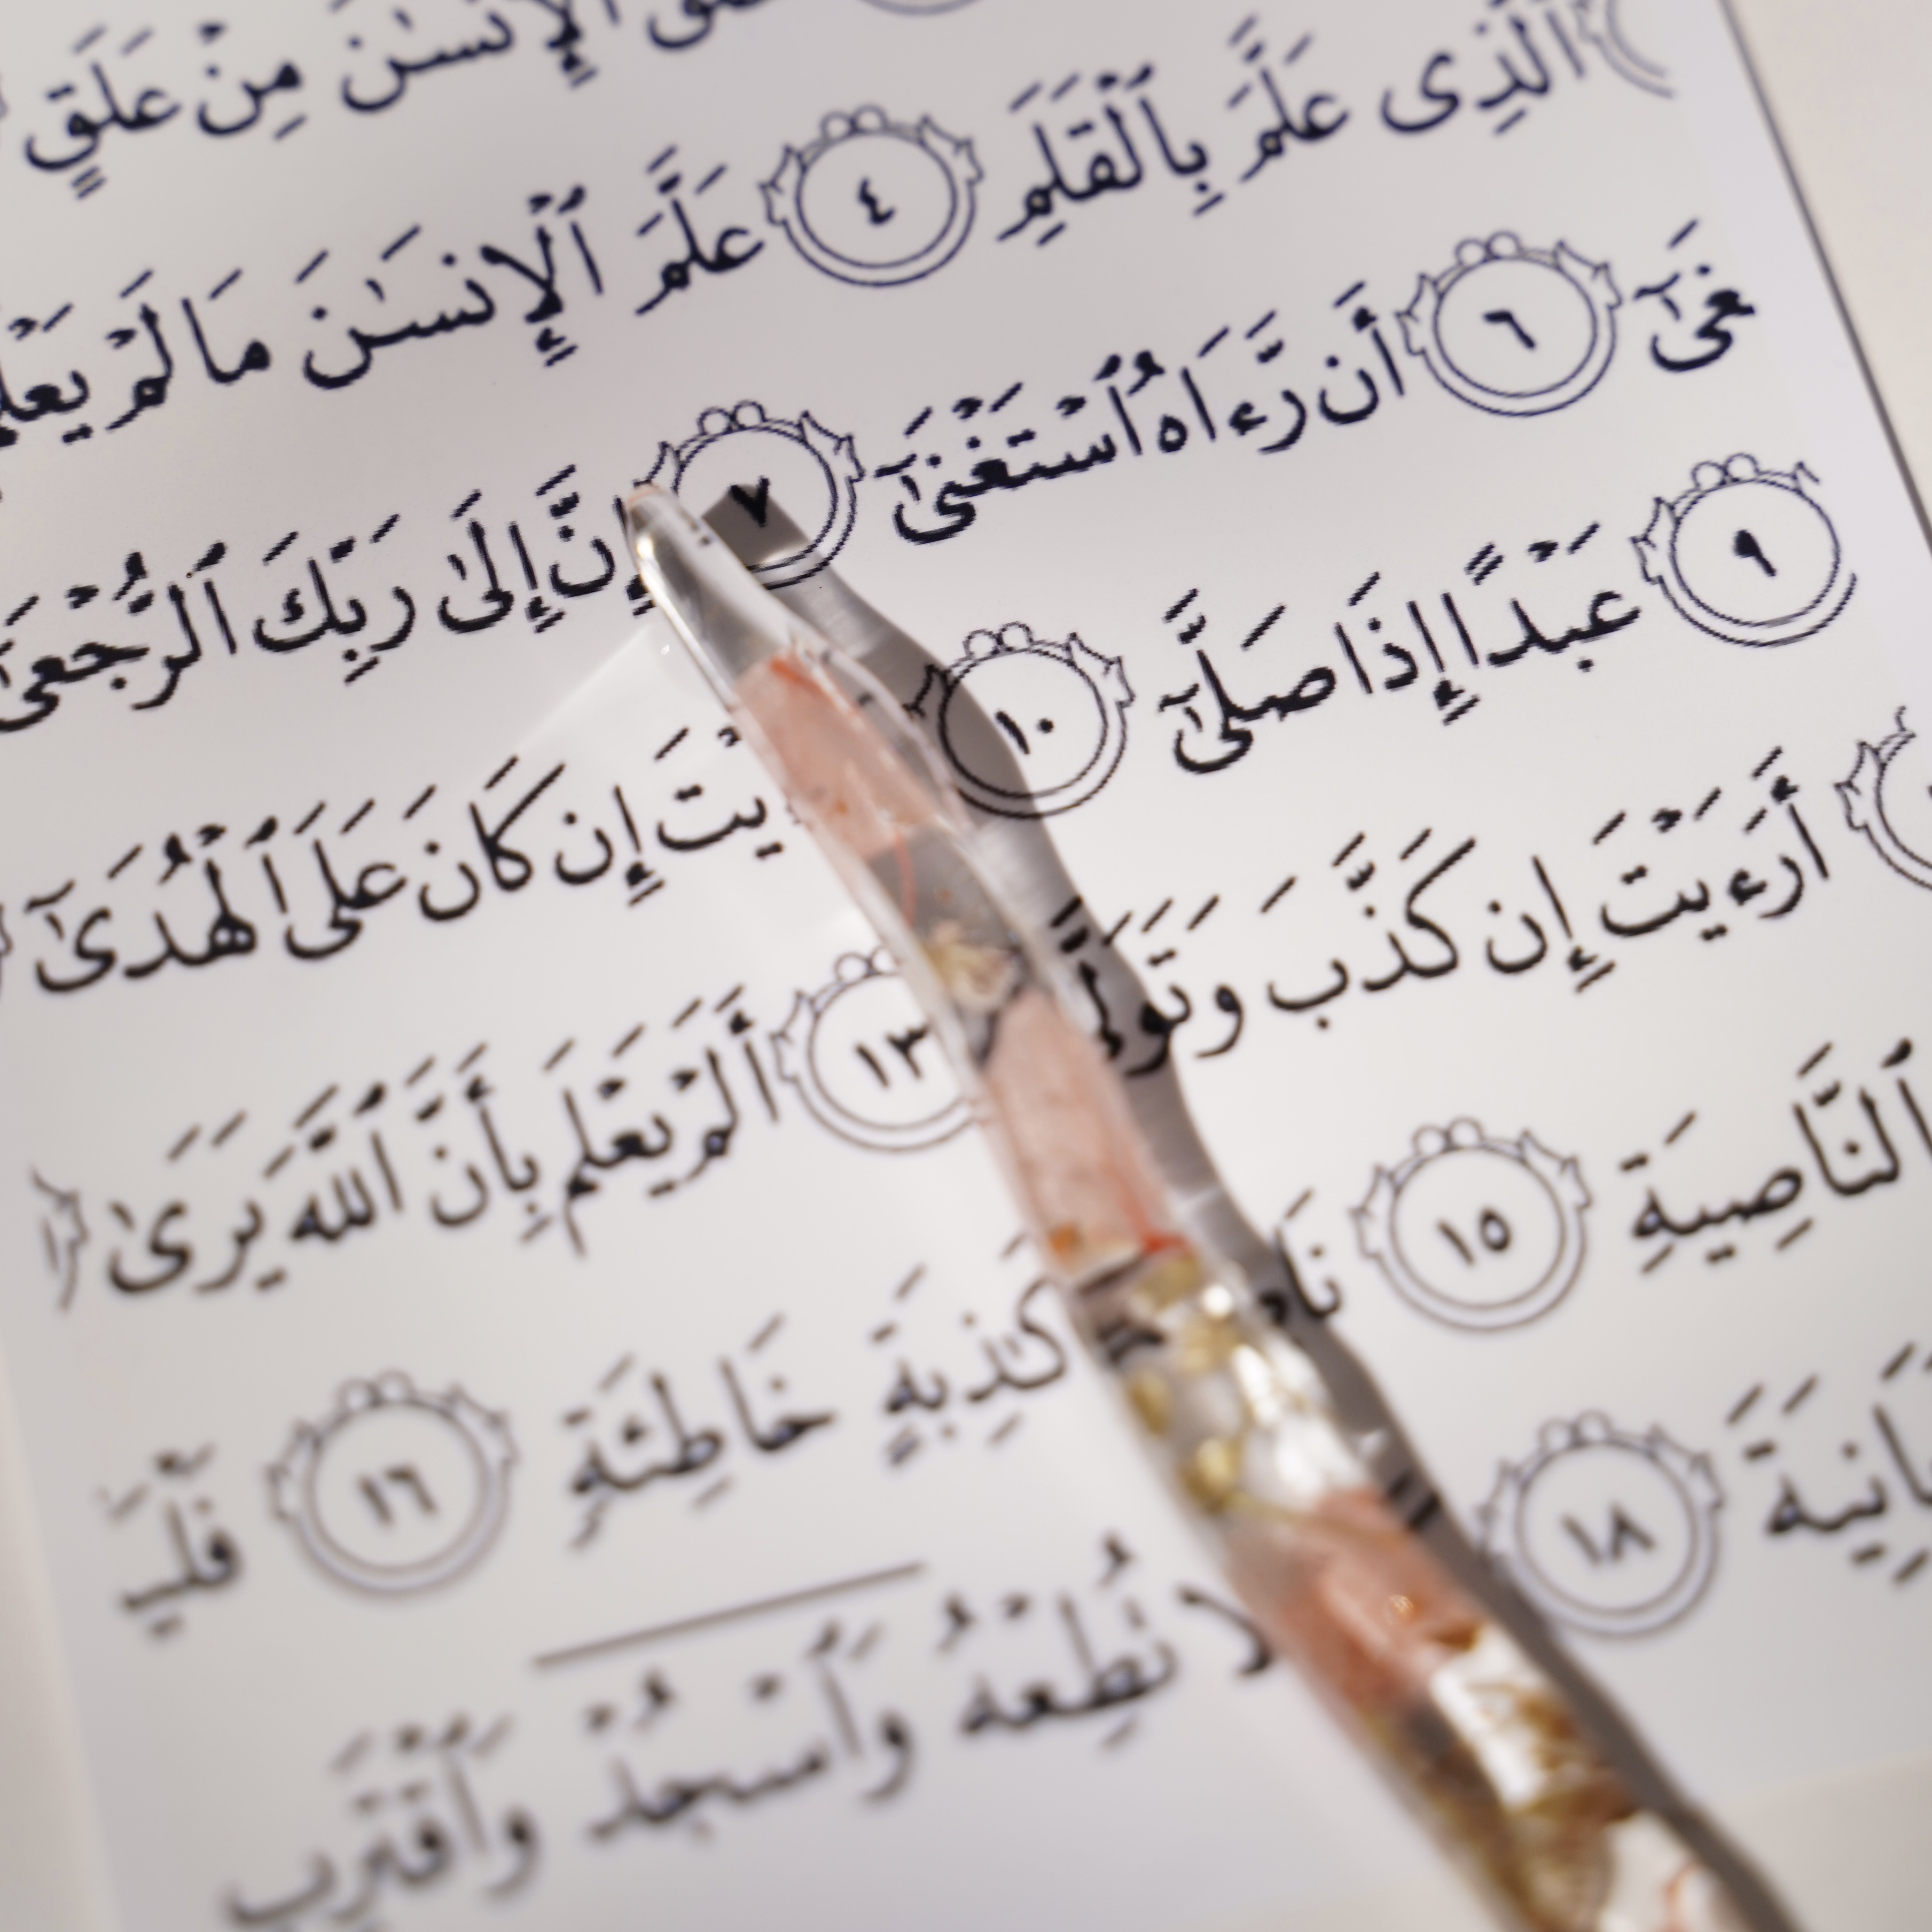 ٱلْإِنسَٰنَ مِنْ عَلَقٍ
ٱلَّذِى عَلَّمَ بِٱلْقَلَمِ ٤ عَلَّمَ ٱلْإِنسَٰنَ مَا لَمْ يَعْلَ
غَىٰٓ ٦ أَن رَّءَاهُ ٱسْتَغْنَىٰٓ ٧ إِنَّ إِلَىٰ رَبِّكَ ٱلرُّجْعَىٰٓ
٩ عَبْدًا إِذَا صَلَّىٰٓ ١٠ يْتَ إِن كَانَ عَلَى ٱلْهُدَىٰٓ
أَرَءَيْتَ إِن كَذَّبَ وَتَوَلَّىٰٓ ١٣ أَلَمْ يَعْلَم بِأَنَّ ٱللَّهَ يَرَىٰ
ٱلنَّاصِيَةِ ١٥ نَا كَٰذِبَةٍ خَاطِئَةٍ ١٦ فَلْيَ
بَانِيَةَ ١٨ لَا تُطِعْهُ وَٱسْجُدْ وَٱقْتَرِب